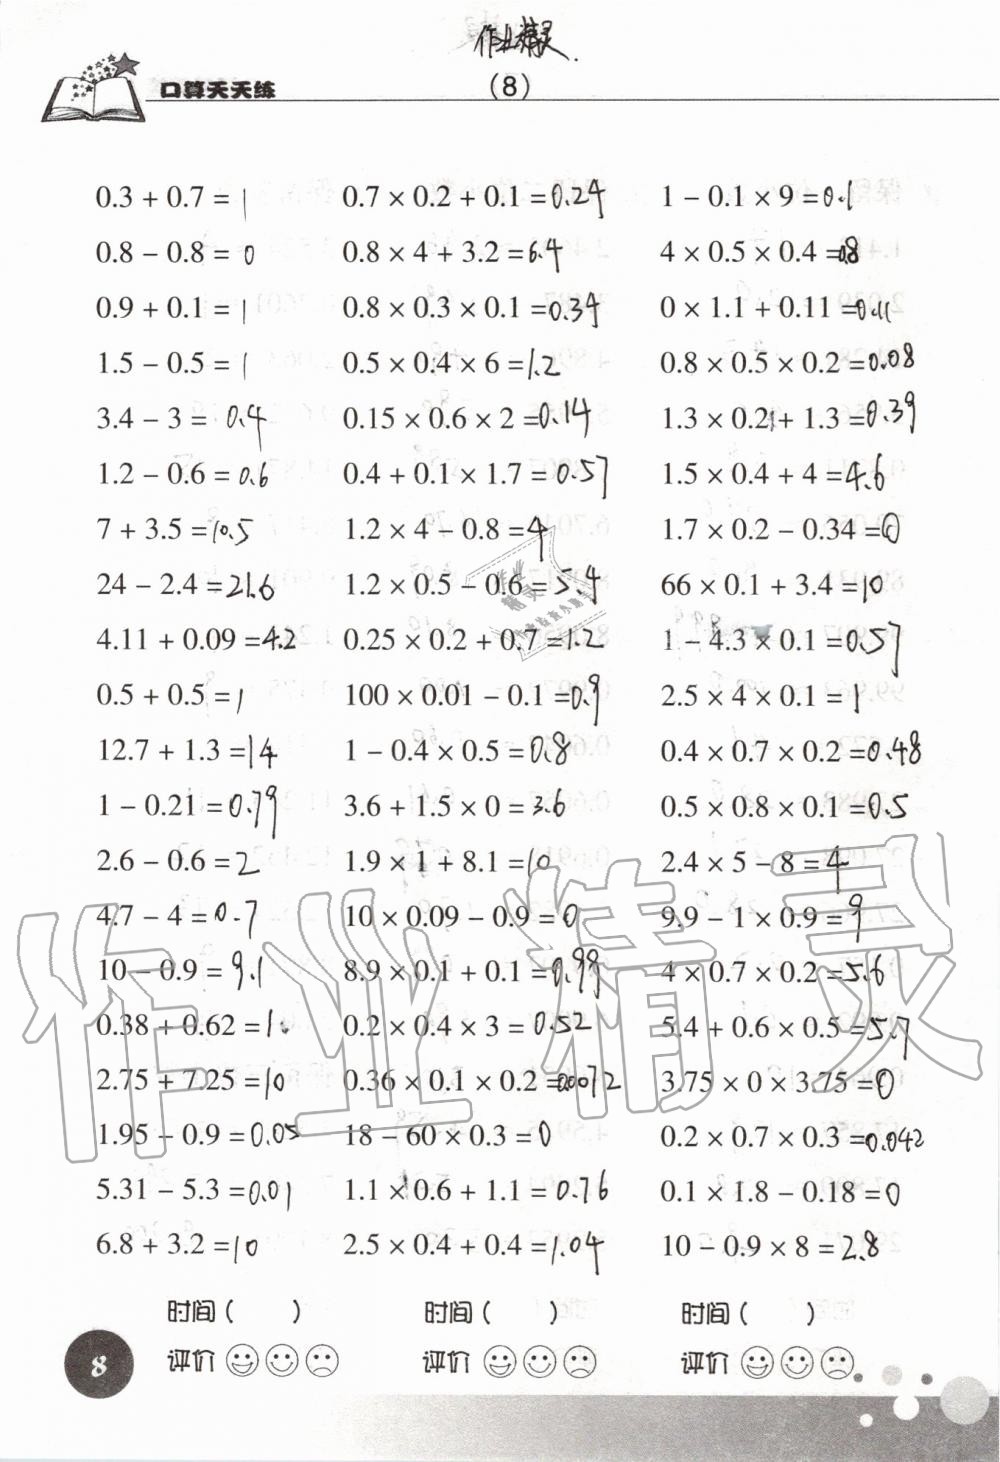 作业精灵
口算天天练
(8)
0.3 + 0.7 = 1 0.7 × 0.2 + 0.1 = 0.24 1 − 0.1 × 9 = 0.1
0.8 − 0.8 = 0 0.8 × 4 + 3.2 = 6.4 4 × 0.5 × 0.4 = 0.8
0.9 + 0.1 = 1 0.8 × 0.3 × 0.1 = 0.34 0 × 1.1 + 0.11 = 0.11
1.5 − 0.5 = 1 0.5 × 0.4 × 6 = 1.2 0.8 × 0.5 × 0.2 = 0.08
3.4 − 3 = 0.4 0.15 × 0.6 × 2 = 0.14 1.3 × 0.2 + 1.3 = 0.39
1.2 − 0.6 = 0.6 0.4 + 0.1 × 1.7 = 0.57 1.5 × 0.4 + 4 = 4.6
7 + 3.5 = 10.5 1.2 × 4 − 0.8 = 4 1.7 × 0.2 − 0.34 = 0
24 − 2.4 = 21.6 1.2 × 0.5 − 0.6 = 5.4 66 × 0.1 + 3.4 = 10
4.11 + 0.09 = 4.2 0.25 × 0.2 + 0.7 = 1.2 1 − 4.3 × 0.1 = 0.57
0.5 + 0.5 = 1 100 × 0.01 − 0.1 = 0.9 2.5 × 4 × 0.1 = 1
12.7 + 1.3 = 14 1 − 0.4 × 0.5 = 0.8 0.4 × 0.7 × 0.2 = 0.48
1 − 0.21 = 0.79 3.6 + 1.5 × 0 = 3.6 0.5 × 0.8 × 0.1 = 0.5
2.6 − 0.6 = 2 1.9 × 1 + 8.1 = 10 2.4 × 5 − 8 = 4
4.7 − 4 = 0.7 10 × 0.09 − 0.9 = 0 9.9 − 1 × 0.9 = 9
10 − 0.9 = 9.1 8.9 × 0.1 + 0.1 = 0.99 4 × 0.7 × 0.2 = 5.6
0.38 + 0.62 = 1. 0.2 × 0.4 × 3 = 0.52 5.4 + 0.6 × 0.5 = 5.7
2.75 + 7.25 = 10 0.36 × 0.1 × 0.2 = 0.0072 3.75 × 0 × 3.75 = 0
1.95 − 0.9 = 0.05 18 − 60 × 0.3 = 0 0.2 × 0.7 × 0.3 = 0.042
5.31 − 5.3 = 0.01 1.1 × 0.6 + 1.1 = 0.76 0.1 × 1.8 − 0.18 = 0
6.8 + 3.2 = 10 2.5 × 0.4 + 0.4 = 1.04 10 − 0.9 × 8 = 2.8
时间 ( ) 时间 ( ) 时间 ( )
评价 评价 评价
8
作业精灵